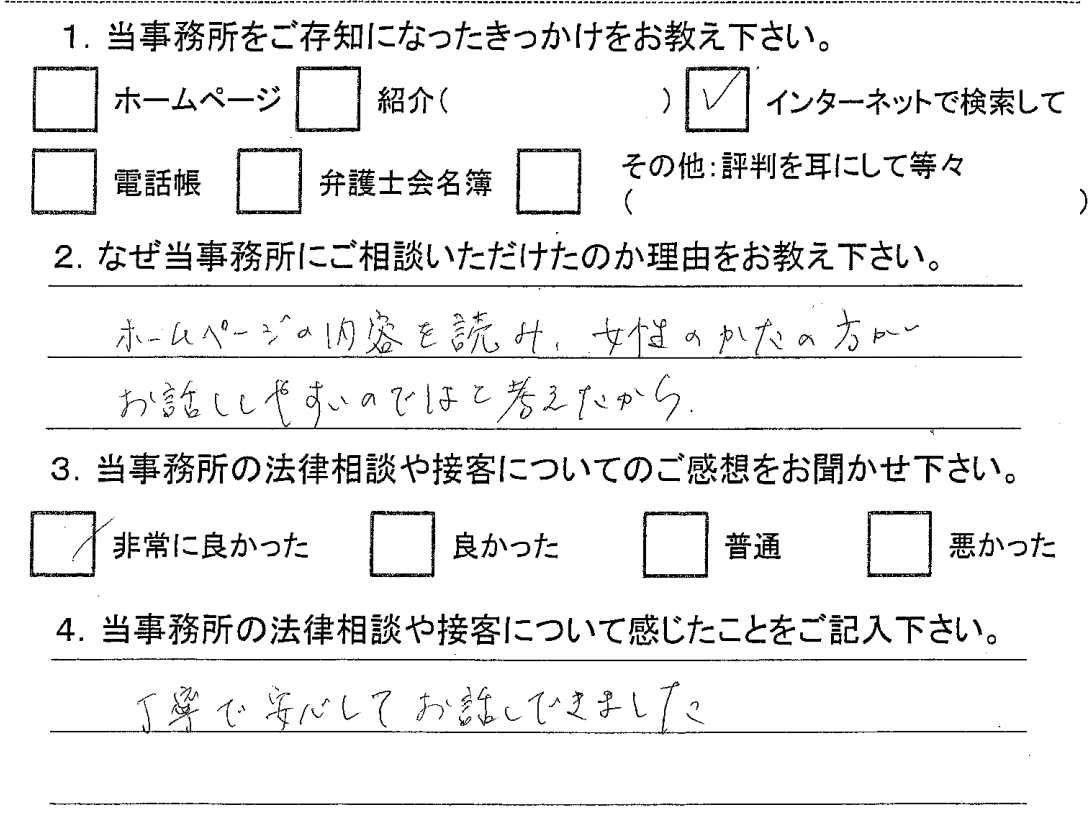 1. 当事務所をご存知になったきっかけをお教え下さい。
ホームページ 紹介( ) ✓ インターネットで検索して
電話帳 弁護士会名簿 その他:評判を耳にして等々
( )
2. なぜ当事務所にご相談いただけたのか理由をお教え下さい。
ホームページの内容を読み、女性のかたの方が
お話ししやすいのではと考えたから.
3. 当事務所の法律相談や接客についてのご感想をお聞かせ下さい。
非常に良かった 良かった 普通 悪かった
4. 当事務所の法律相談や接客について感じたことをご記入下さい。
丁寧で安心してお話しできました